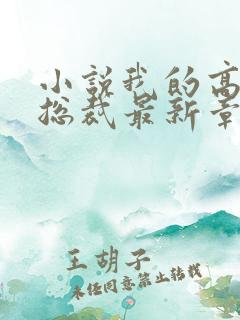 小说我的高
总裁最新章
王胡子
未经同意禁止转载